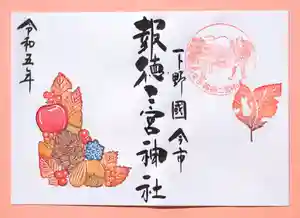 下野國今市
報徳二宮神社
令和五年